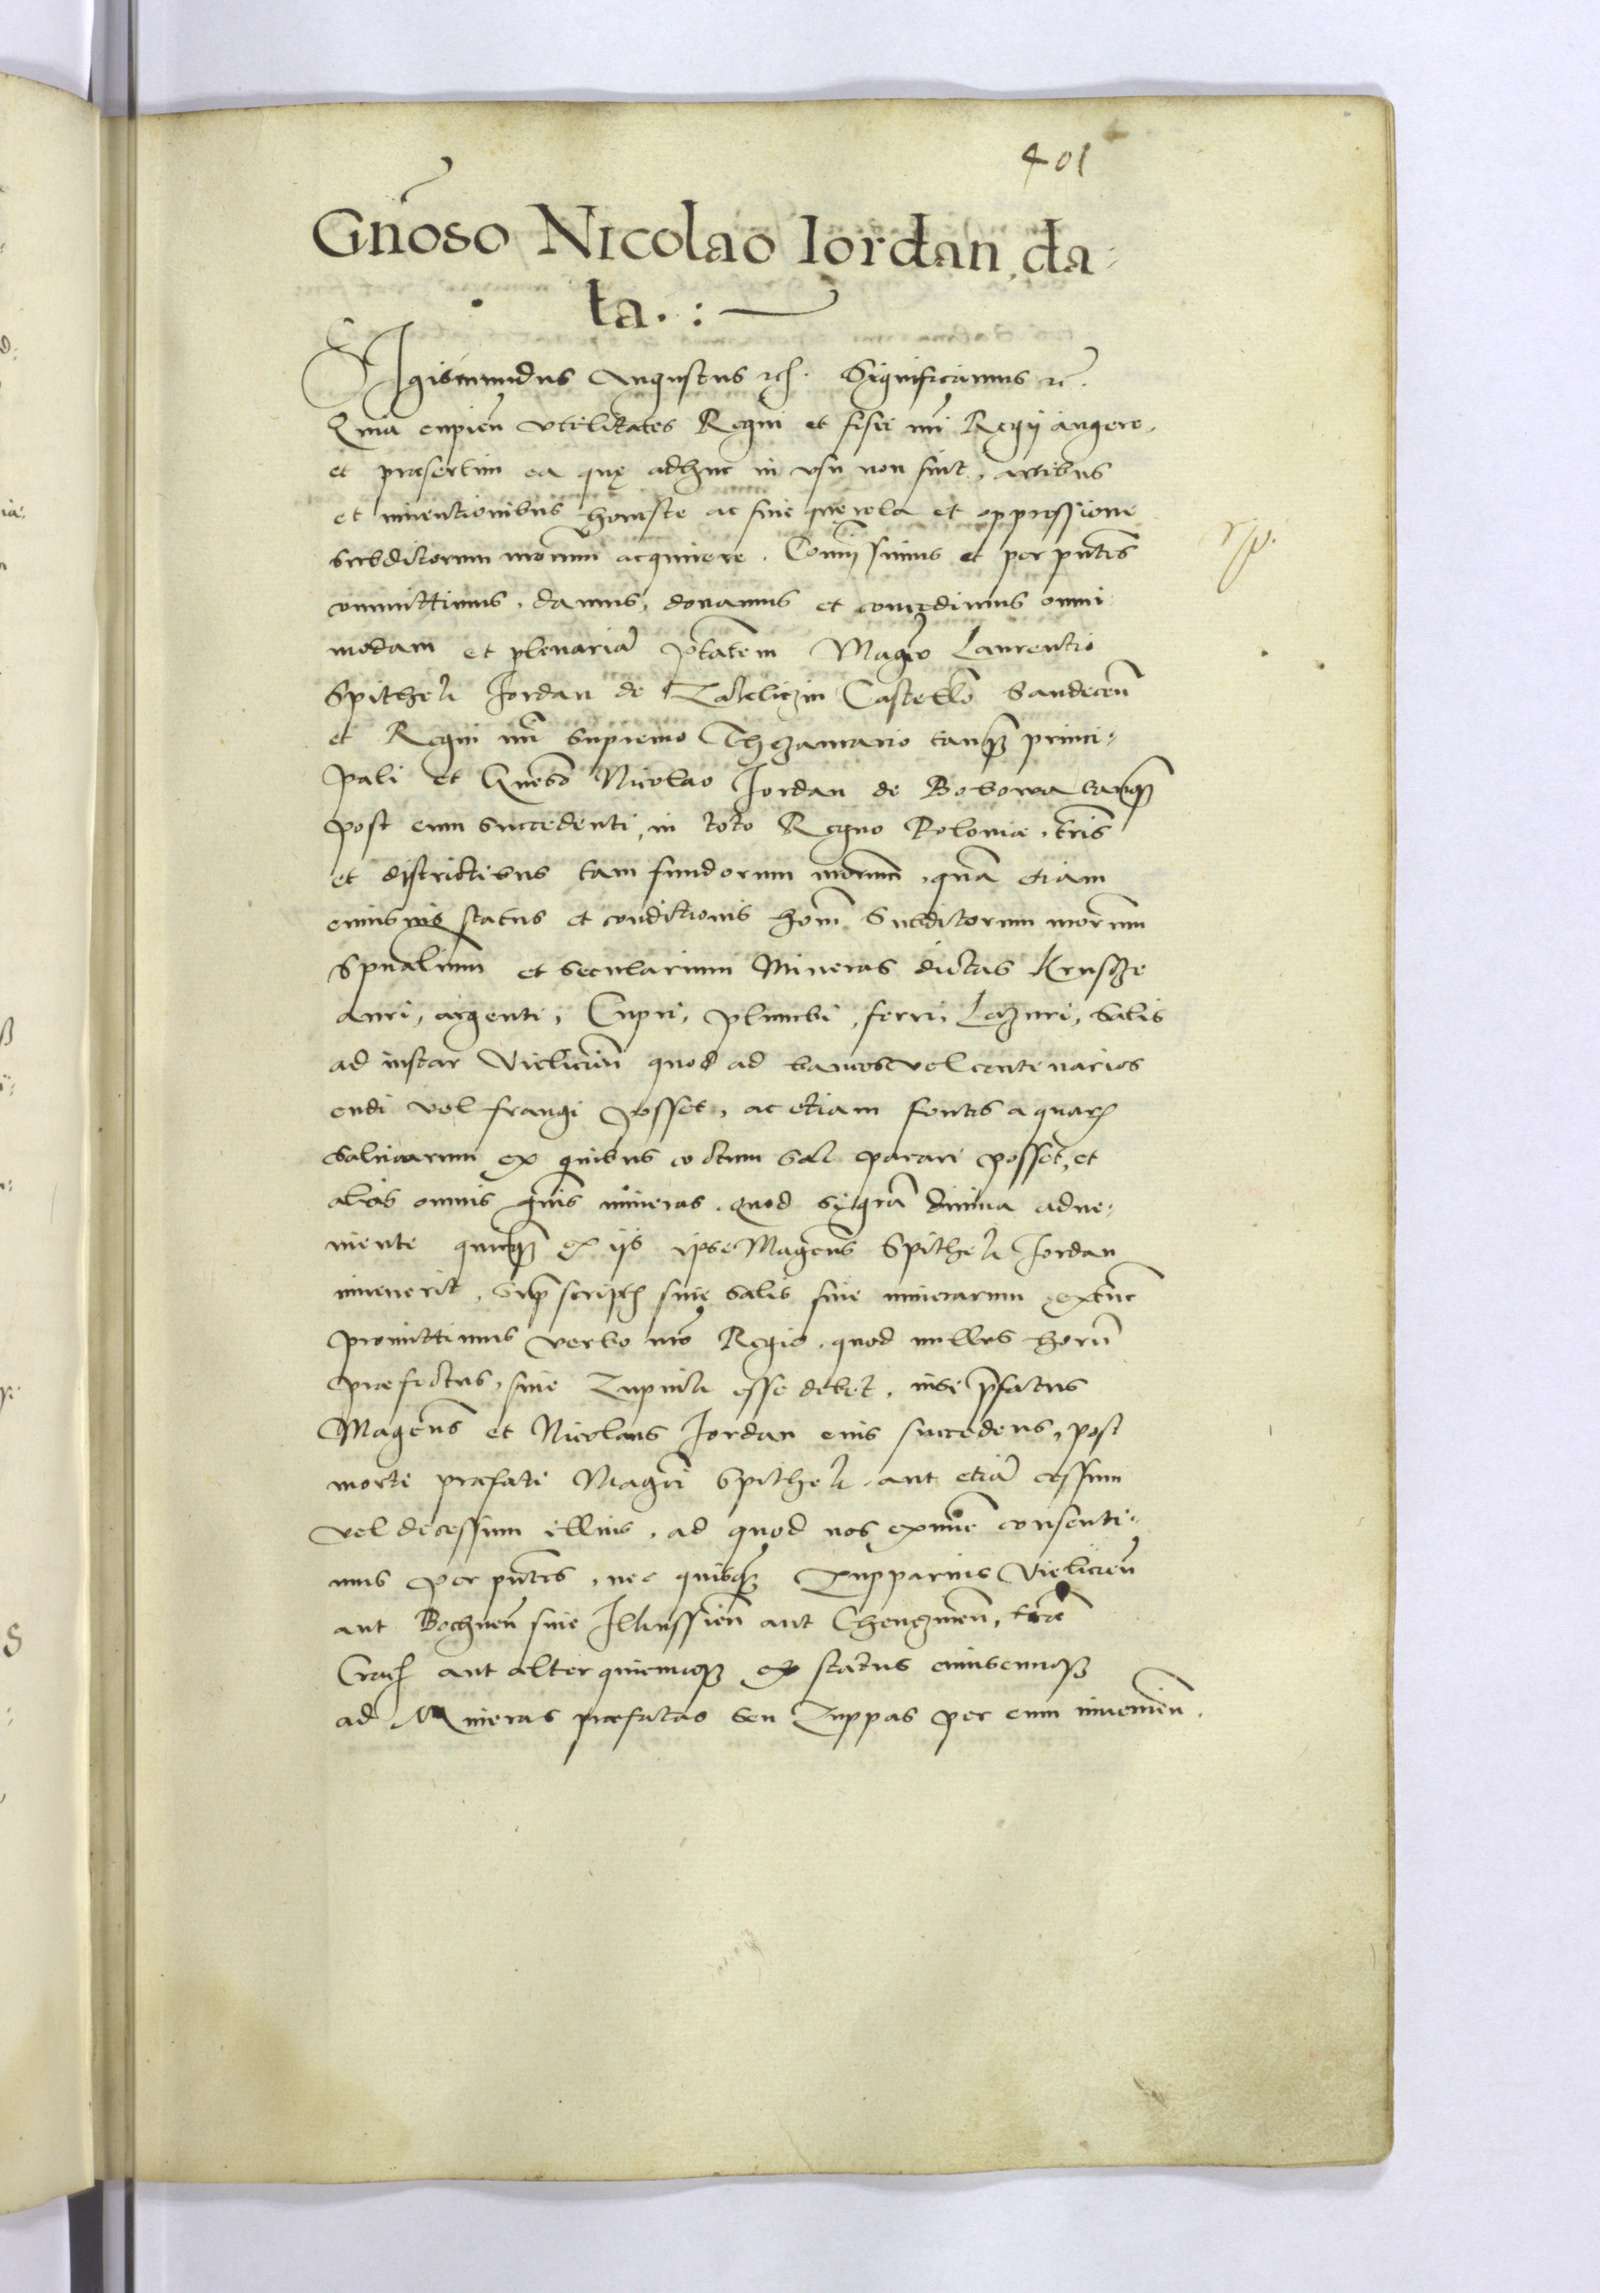 401
Gnoso Nicolao Iordan da-
ta.:
Sigismundus Augustus etc. Significamus etc.
Quia cupien utilitates Regni et fisci nri Regij augere,
et præsertim ea quę adhuc in usu non sint, artibus
et inventionibus honeste ac sine querela et oppressione
subditorum nrorum acquirere. Commisimus et per pntes
committimus, damus, donamus et concedimus omni
modam et plenariã ptatem Magco Laurentio
Spithek Jordan de Zakliczin Castello Sandecen
et Regni nri supremo Thezaurario tanq princi-
pali et Gnoso Nicolao Jordan de Bobowa tanq
post eum succedenti, in toto Regno Poloniæ, tris
et districtibus tam fundorum nrorum, quã etiam
cuiusvis status et conditionis homi Subditorum nrorum
Spualium et secularium Mineras dictas Krusze
auri, argenti, Cupri, plumbi, ferri, Lazuri, Salis
ad instar Vielicien quod ad bancos vel centenarios
cudi vel frangi posset, ac etiam fontes aquarũ
salinarum ex quibus coctum sal parari posset, et
alias omnis gnis mineras. Quod si gra divina adve-
niente quicq ex ijs ipse Magcus Spithek Jordan
invenerit, suprascript sive salis sive minerarum extunc
promittimus verbo nro Regio, quod nullus horũ
præfectus, sive Zupnik esse debet, nisi pfatus
Magcus et Nicolaus Jordan eius succedens, post
morte præfati Magci Spithek aut etiã cessum
vel decessum illius, ad quod nos exnunc consenti-
mus per pntes, nec quisq Zupparius Vielicien
aut Bochnen sive Ilkussien aut Chenzinen, træ
Crac aut alter quicunq ex status cuiuscunq
ad Mineras præfatas seu Zuppas per eum invenien.